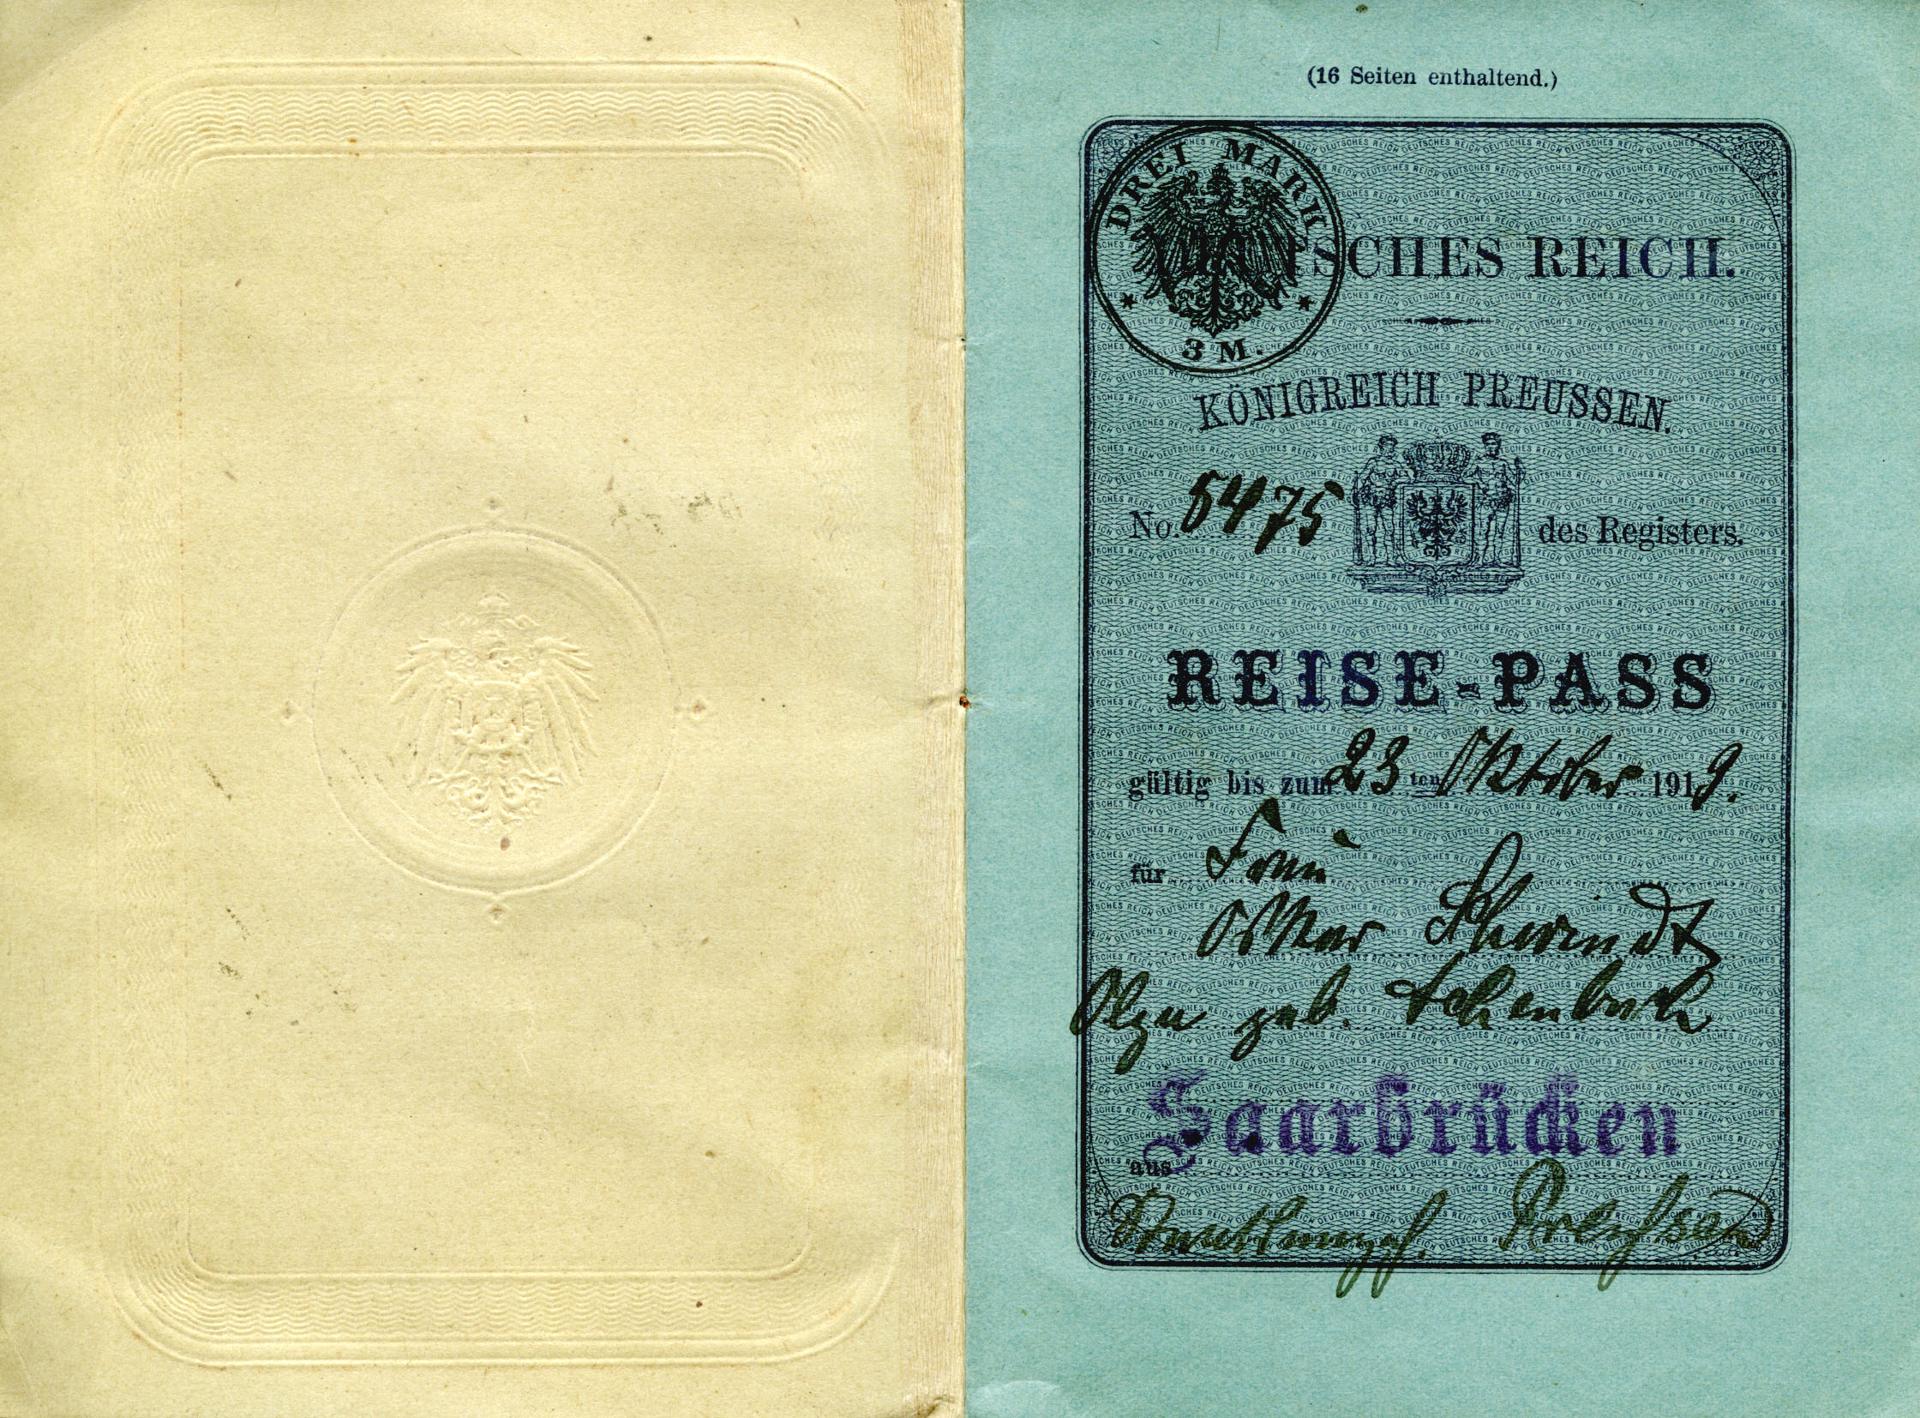 (16 Seiten enthaltend.)
DREI MARK
3 M.
DEUTSCHES REICH.
KÖNIGREICH PREUSSEN.
No. 5475 des Registers.
REISE-PASS
gültig bis zum 23 ten Oktober 1919.
für Frau
Oskar Schwindt
Olga geb.
Saarbrücken
aus
Preußen